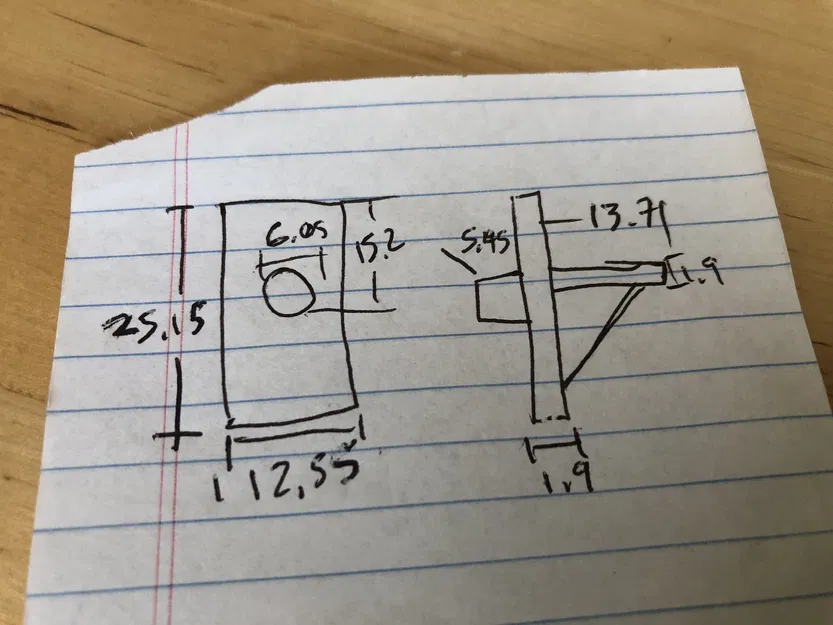 6.05
15.2
25.15
12.55
5.45
13.71
1.9
1.9